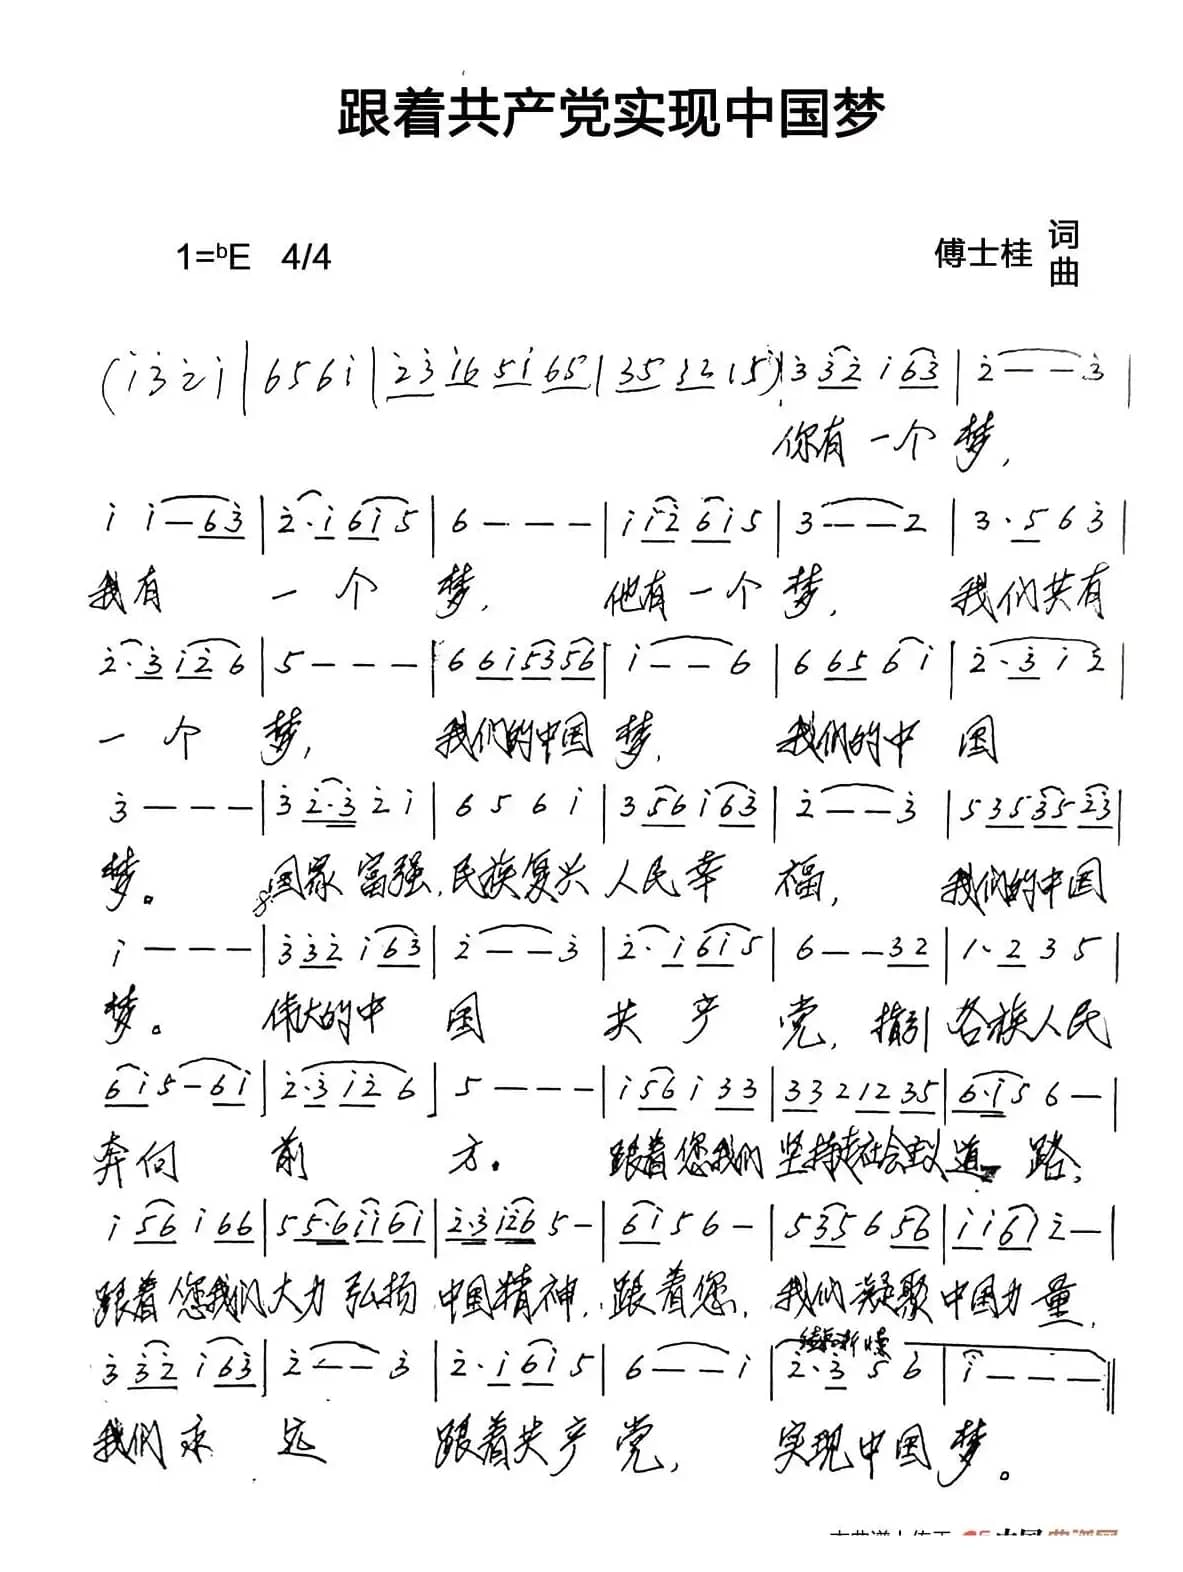 跟着共产党实现中国梦
1=ᵇE 4/4
傅士桂 词
曲
(i̇ 3̇ 2̇ i̇ | 6 5 6 i̇ | 2̇3̇ i̇6 5i̇ 65 | 35 32 1 5) | 3̇ 3̇2̇ i̇ 63̇ | 2̇ - - 3̇ |
你有一个梦,
i̇ i̇ - 63̇ | 2̇· i̇ 6i̇ 5 | 6 - - - | i̇ i̇2̇ 6i̇ 5 | 3 - - 2 | 3· 5 6 3̇ |
我有一个梦, 他有一个梦, 我们共有
2̇· 3̇ i̇2̇ 6 | 5 - - - | 6 6i̇ 53 56 | i̇ - - 6 | 6 65 6 i̇ | 2̇· 3̇ i̇ 2̇ |
一个梦, 我们的中国梦, 我们的中国
3̇ - - - | 3̇ 2̇·3̇ 2̇ i̇ | 6 5 6 i̇ | 3 56 i̇ 63̇ | 2̇ - - 3̇ | 5 35 35 2̇3̇ |
梦。 国家富强,民族复兴人民幸福, 我们的中国
i̇ - - - | 3̇ 3̇2̇ i̇ 63̇ | 2̇ - - 3̇ | 2̇· i̇ 6i̇ 5 | 6 - - 32 | 1· 2 3 5 |
梦。 伟大的中国共产党, 指引各族人民
6i̇ 5 - 6i̇ | 2̇·3̇ i̇2̇ 6 | 5 - - - | i̇ 56 i̇ 33 | 33 2 12 35 | 6·i̇ 5 6 - |
奔向前方。 跟着您我们坚持走社会主义道路,
i̇ 56 i̇ 66 | 5 5·6 i̇i̇ 6i̇ | 2̇·3̇ i̇2̇6 5 - | 6i̇ 5 6 - | 5 35 6 56 | i̇ i̇6i̇ 2̇ - |
跟着您我们大力弘扬中国精神, 跟着您, 我们凝聚中国力量,
3̇ 3̇2̇ i̇ 63̇ | 2̇ - - 3̇ | 2̇· i̇ 6i̇ 5 | 6 - - i̇ | 2̇· 3̇ 5 6 | i̇ - - - ‖
我们永远跟着共产党, 实现中国梦。